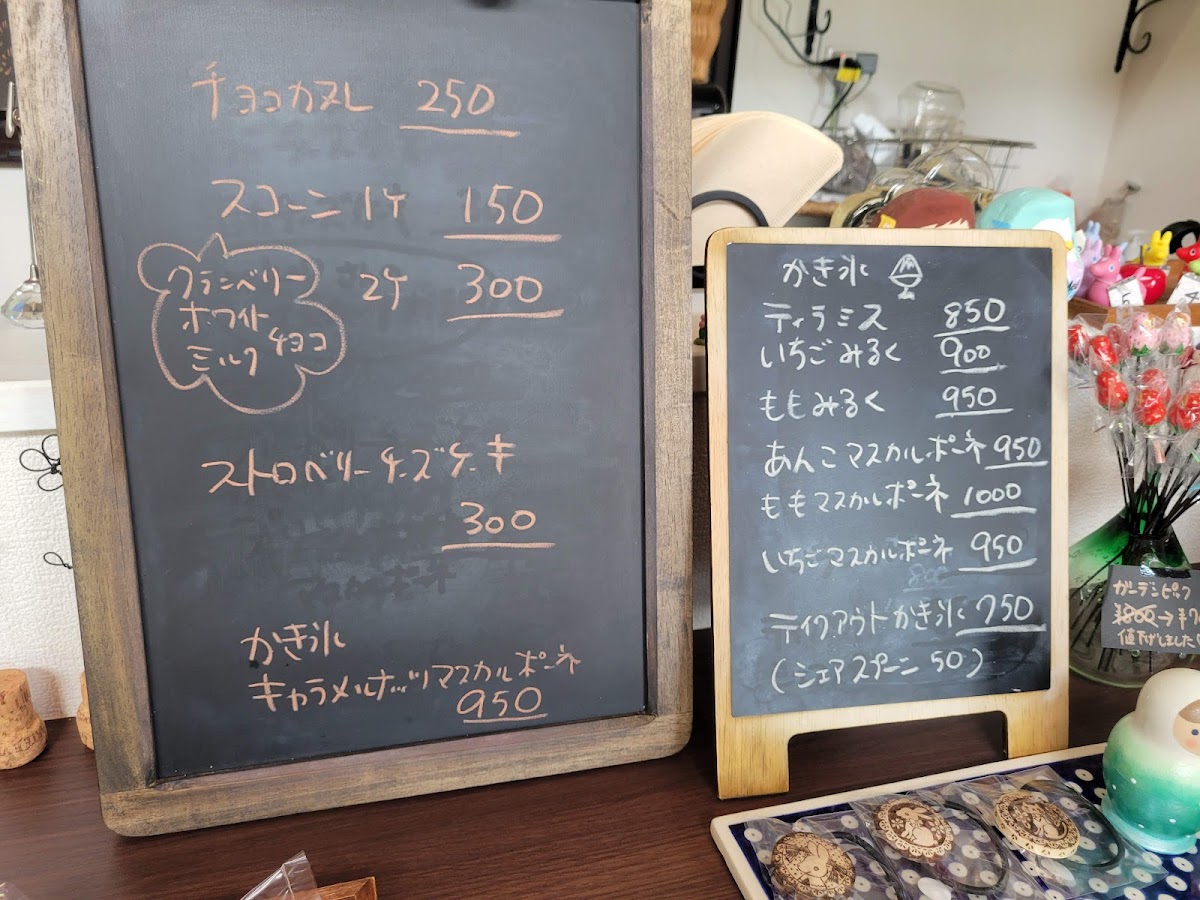 チョココカヌレ 250
スコーン 1ケ 150
2ケ 300
クランベリー
ホワイト
ミルク チョコ
ストロベリーチーズケーキ
300
かき氷
キャラメルナッツマスカルポーネ
950
かき氷
ティラミス 850
いちごみるく 900
ももみるく 950
あんこマスカルポーネ 950
ももマスカルポーネ 1000
いちごマスカルポーネ 950
テイクアウトかき氷 750
(シェアスプーン 50)
ガーデンピック
¥800→¥7
値下げしました